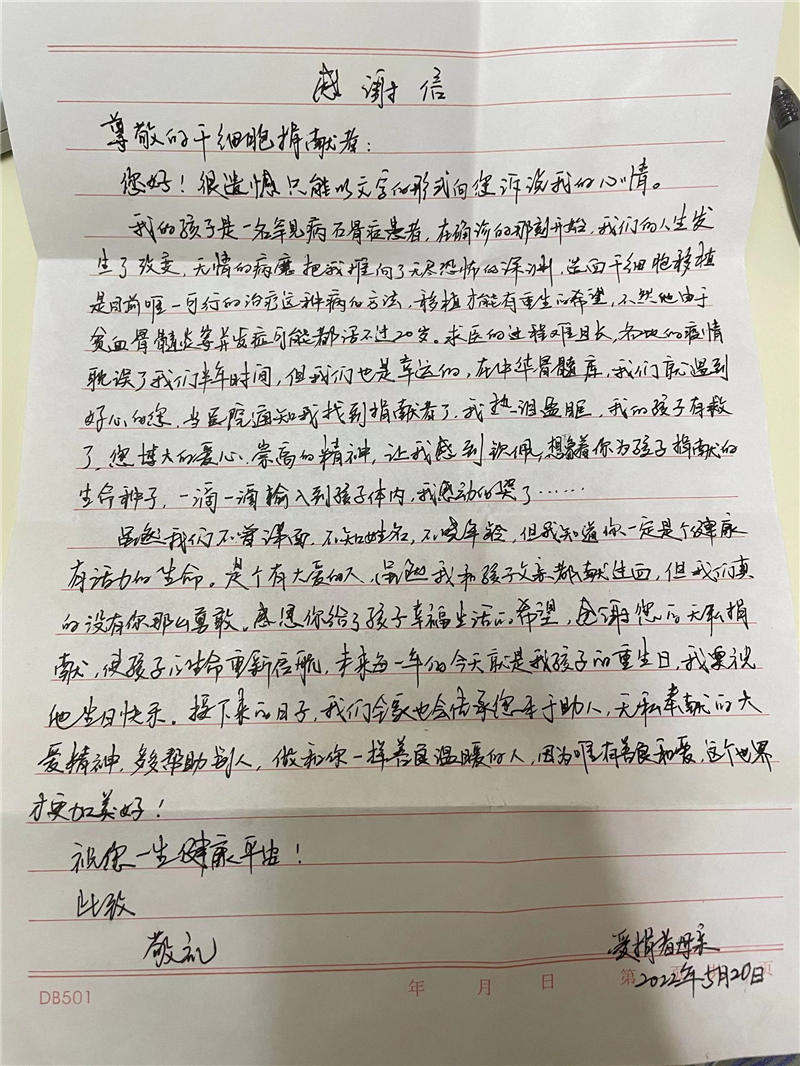 感谢信
尊敬的干细胞捐献者：
您好！很遗憾只能以文字的形式向您诉说我的心情。
我的孩子是一名罕见病石骨症患者，在确诊的那刻开始，我们的人生发
生了改变，无情的病魔把我推向了无尽恐怖的深渊，造血干细胞移植
是目前唯一可行的治疗这种病的方法，移植才能有重生的希望，不然他由于
贫血骨髓炎等并发症可能都活不过20岁。求医的过程艰且长，各地的疫情
耽误了我们半年时间，但我们也是幸运的，在中华骨髓库，我们就遇到
好心的您，当医院通知我找到捐献者了，我热泪盈眶，我的孩子有救
了，您博大的爱心、崇高的精神，让我感到钦佩，想象着你为孩子捐献的
生命种子，一滴一滴输入到孩子体内，我感动的哭了……
虽然我们不曾谋面，不知姓名，不晓年龄，但我知道你一定是个健康
有活力的生命。是个有大爱的人，虽然我和孩子父亲都献过血，但我们真
的没有你那么勇敢。感恩你给了孩子幸福生活的希望，感谢您的无私捐
献，使孩子的生命重新启航，未来每一年的今天就是我孩子的重生日，我要祝
他生日快乐。接下来的日子，我们全家也会传承您乐于助人，无私奉献的大
爱精神，多帮助别人，做和你一样善良温暖的人，因为唯有善良和爱，这个世界
才更加美好！
祝您一生健康平安！
此致
敬礼
受捐者母亲
2022年5月20日
DB501
年 月 日 第 页